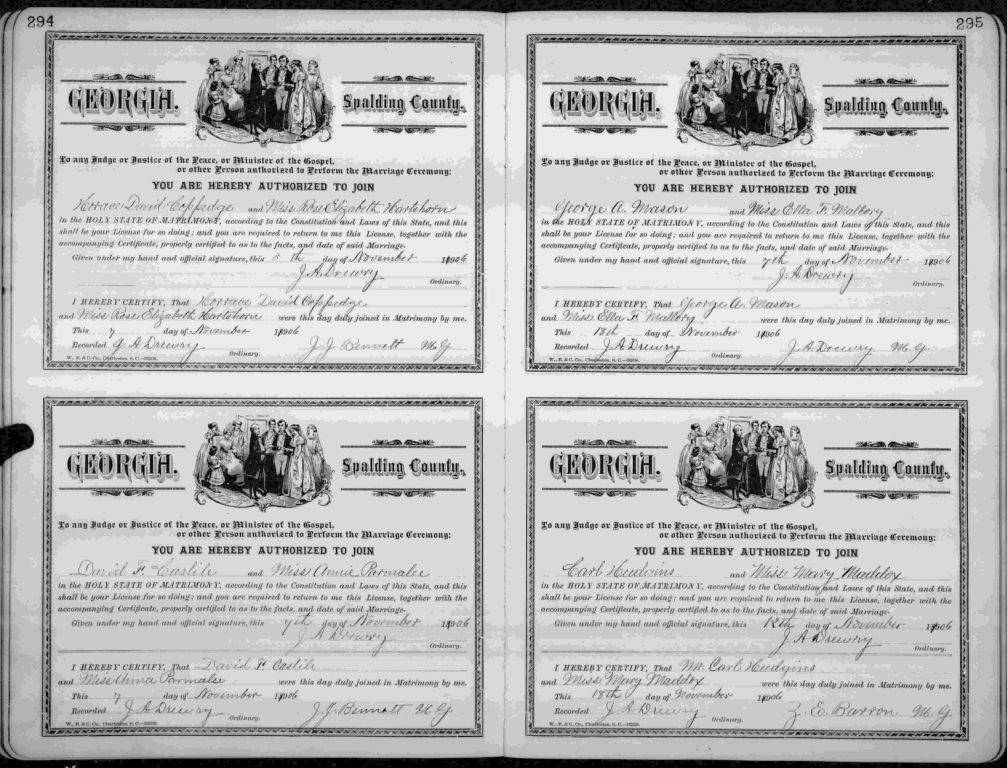 294
GEORGIA.
Spalding County.
To any Judge or Justice of the Peace, or Minister of the Gospel,
or other Person authorized to Perform the Marriage Ceremony:
YOU ARE HEREBY AUTHORIZED TO JOIN
Horrace David Coppedge and Miss Rose Elizabeth Hartshorn
in the HOLY STATE OF MATRIMONY, according to the Constitution and Laws of this State, and this
shall be your License for so doing; and you are required to return to me this License, together with the
accompanying Certificate, properly certified as to the facts, and date of said Marriage.
Given under my hand and official signature, this th day of November 1906
J. A. Drewry
Ordinary.
I HEREBY CERTIFY, That Horrace David Coppedge
and Miss Rose Elizabeth Hartshorn were this day duly joined in Matrimony by me.
This 7 day of November 1906
Recorded J A Drewry J. J. Bennett M. G.
Ordinary.
W., E. & C. Co., Charleston, S. C.
GEORGIA.
Spalding County.
To any Judge or Justice of the Peace, or Minister of the Gospel,
or other Person authorized to Perform the Marriage Ceremony:
YOU ARE HEREBY AUTHORIZED TO JOIN
David F. Castile and Miss Annie Parmalee
in the HOLY STATE OF MATRIMONY, according to the Constitution and Laws of this State, and this
shall be your License for so doing; and you are required to return to me this License, together with the
accompanying Certificate, properly certified as to the facts, and date of said Marriage.
Given under my hand and official signature, this 7th day of November 1906
J A Drewry
Ordinary.
I HEREBY CERTIFY, That David F. Castile
and Miss Parmalee were this day duly joined in Matrimony by me.
This 7 day of November 1906
Recorded J A Drewry J. J. Bennett M. G.
Ordinary.
W., E. & C. Co., Charleston, S. C.
295
GEORGIA.
Spalding County.
To any Judge or Justice of the Peace, or Minister of the Gospel,
or other Person authorized to Perform the Marriage Ceremony:
YOU ARE HEREBY AUTHORIZED TO JOIN
George A. Mason and Miss Ella F. Mallory
in the HOLY STATE OF MATRIMONY, according to the Constitution and Laws of this State, and this
shall be your License for so doing; and you are required to return to me this License, together with the
accompanying Certificate, properly certified as to the facts, and date of said Marriage.
Given under my hand and official signature, this 7th day of November 1906
J. A. Drewry
Ordinary.
I HEREBY CERTIFY, That George A. Mason
and Miss Ella F. Mallory were this day duly joined in Matrimony by me.
This 18th day of November 1906
Recorded J. A Drewry J. A Drewry M. G.
Ordinary.
W., E. & C. Co., Charleston, S. C.
GEORGIA.
Spalding County.
To any Judge or Justice of the Peace, or Minister of the Gospel,
or other Person authorized to Perform the Marriage Ceremony:
YOU ARE HEREBY AUTHORIZED TO JOIN
Carl Hudgins and Miss Mary Maddox
in the HOLY STATE OF MATRIMONY, according to the Constitution and Laws of this State, and this
shall be your License for so doing; and you are required to return to me this License, together with the
accompanying Certificate, properly certified as to the facts, and date of said Marriage.
Given under my hand and official signature, this 18th day of November 1906
J A Drewry
Ordinary.
I HEREBY CERTIFY, That Mr. Carl Hudgins
and Miss Mary Maddox were this day duly joined in Matrimony by me.
This 18th day of November 1906
Recorded J. A Drewry Z. E. Barron M. G.
Ordinary.
W., E. & C. Co., Charleston, S. C.